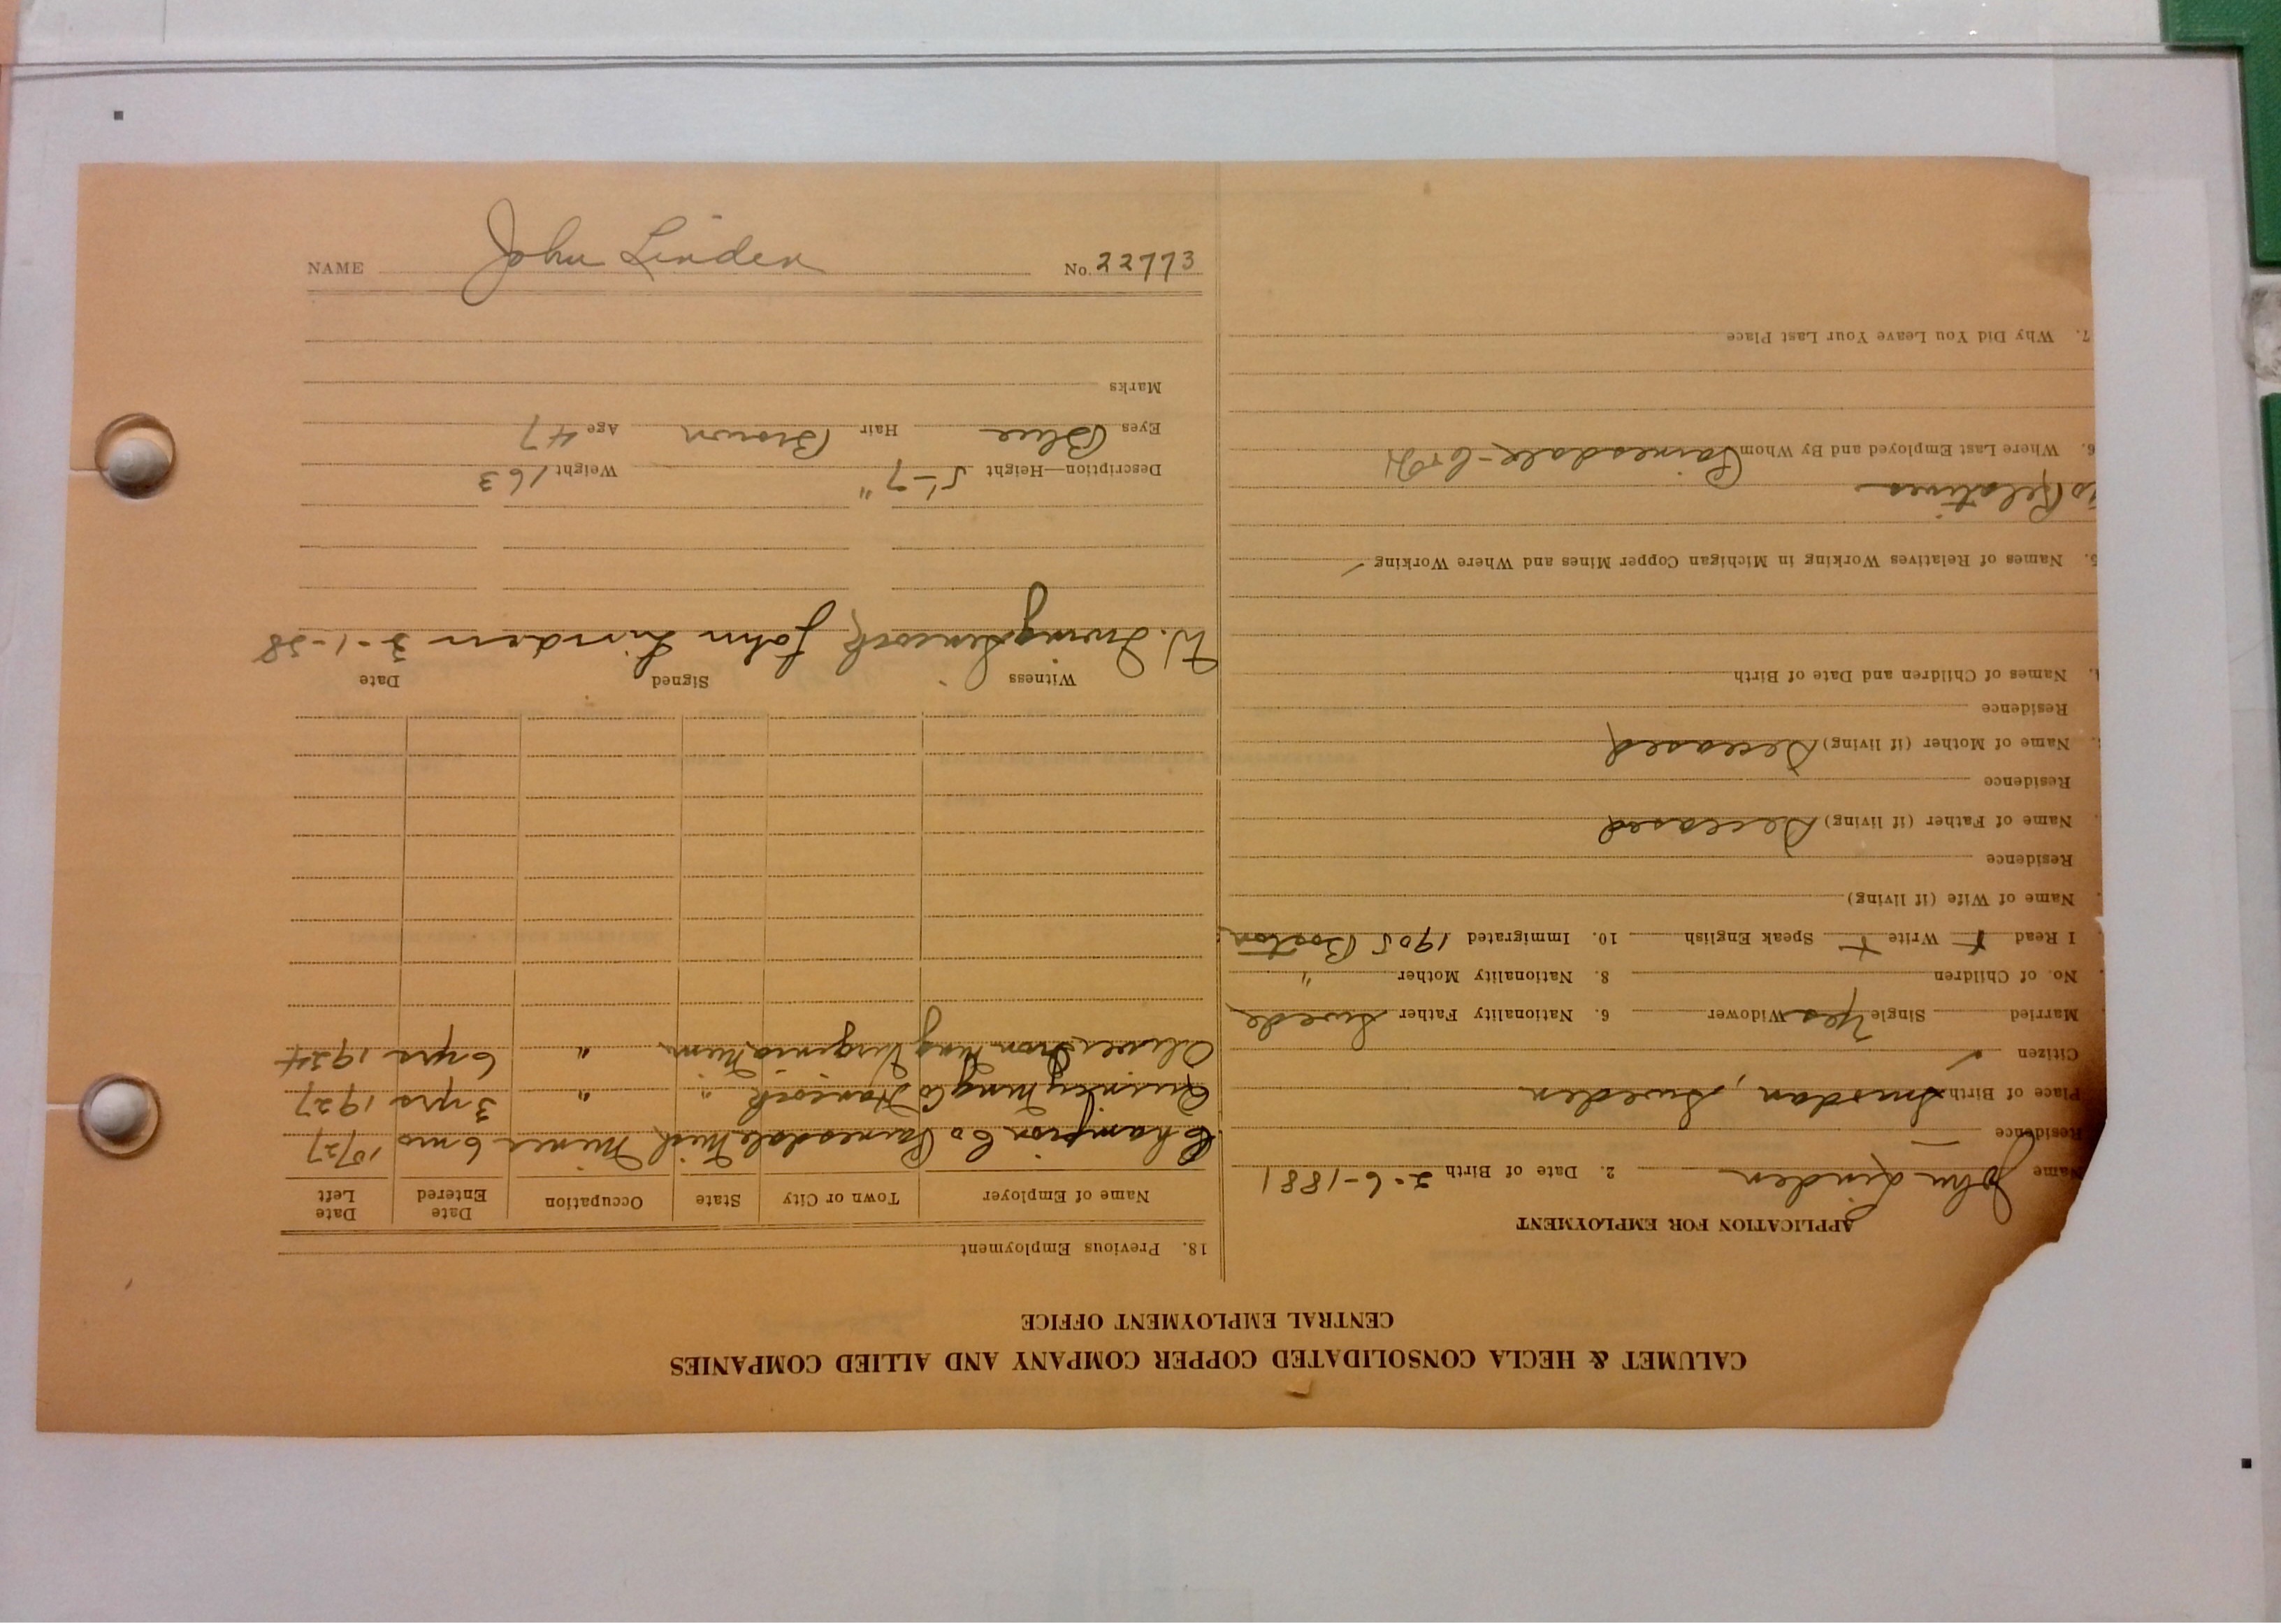 NAME John Linden No. 22773
CALUMET & HECLA CONSOLIDATED COPPER COMPANY AND ALLIED COMPANIES
CENTRAL EMPLOYMENT OFFICE
APPLICATION FOR EMPLOYMENT
Name John Linden 2. Date of Birth 2-6-1881
Residence
Place of Birth Smsdan, Sweden
Citizen
Married Single Yes Widower 6. Nationality Father Swede
No. of Children 8. Nationality Mother "
I Read + Write + Speak English 10. Immigrated 1905 Boston
Name of Wife (if living)
Residence
Name of Father (if living) Deceased
Residence
Name of Mother (if living) Deceased
Residence
Names of Children and Date of Birth
5. Names of Relatives Working in Michigan Copper Mines and Where Working
Relatives
6. Where Last Employed and By Whom Painesdale-
7. Why Did You Leave Your Last Place
18. Previous Employment
Name of Employer Town or City State Occupation Date Entered Date Left
Champion Co Painesdale Mich Miner 6 mo 10/27
Quincy Mng Co Hancock " " 3 yrs 1927
Oliver Iron Mng Virginia Minn " 6 yrs 1924
Witness Signed Date
W. John Linden 3-1-28
Description—Height 5'-7" Weight 163
Eyes Blue Hair Brown Age 47
Marks